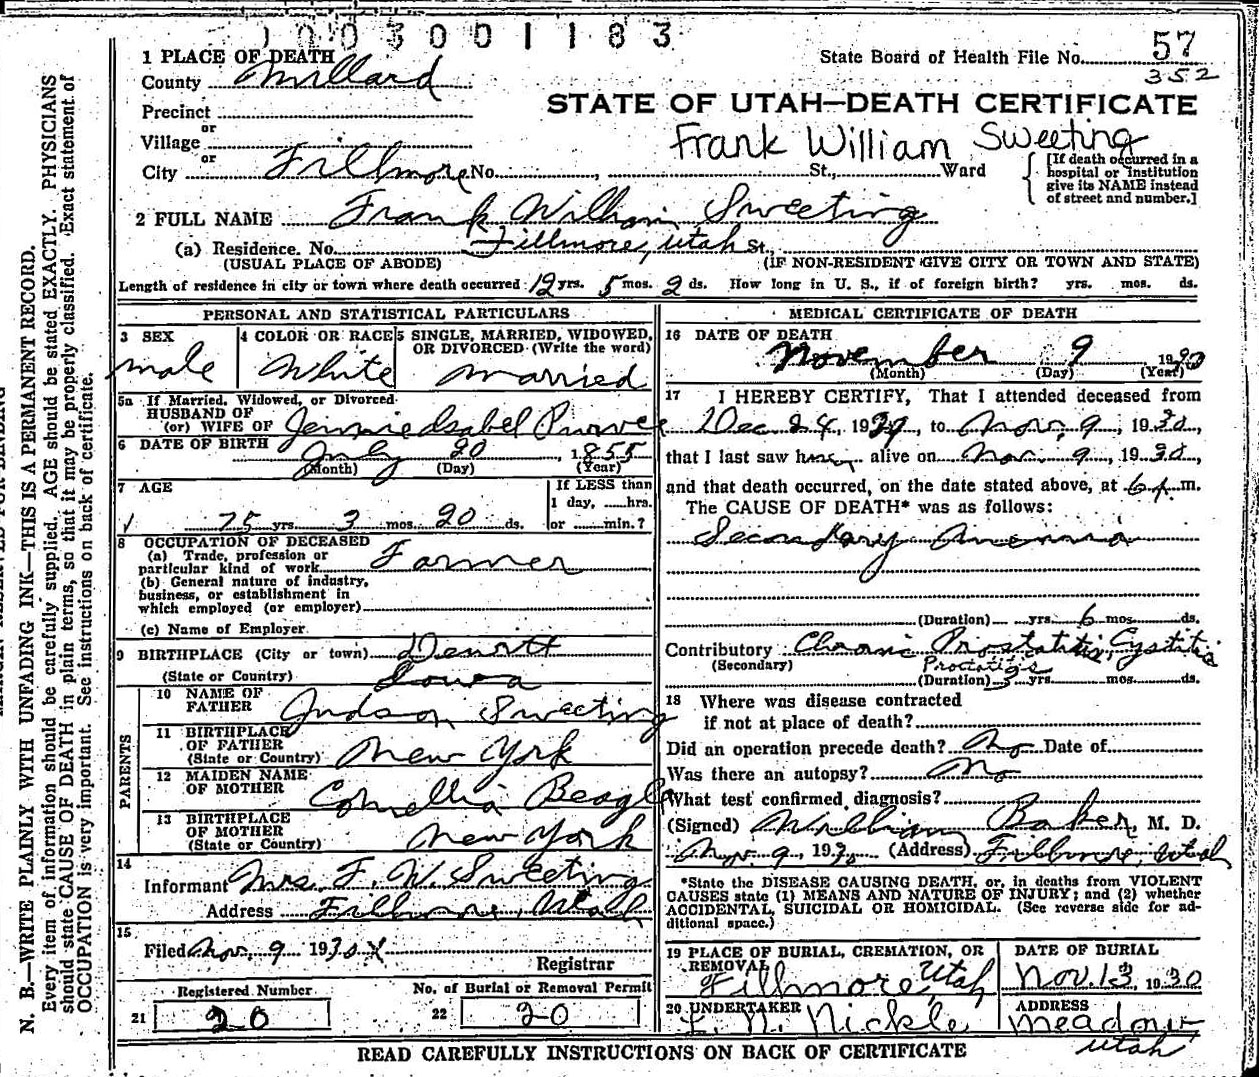 1003001183
1 PLACE OF DEATH
County Millard
State Board of Health File No. 57
352
Precinct
or
Village
or
City Fillmore No. , St., Ward
STATE OF UTAH—DEATH CERTIFICATE
Frank William Sweeting
[If death occurred in a
hospital or institution
give its NAME instead
of street and number.]
2 FULL NAME Frank William Sweeting
(a) Residence. No. Fillmore, Utah St.
(USUAL PLACE OF ABODE) (IF NON-RESIDENT GIVE CITY OR TOWN AND STATE)
Length of residence in city or town where death occurred 12 yrs. 5 mos. 2 ds. How long in U. S., if of foreign birth? yrs. mos. ds.
PERSONAL AND STATISTICAL PARTICULARS
3 SEX
male
4 COLOR OR RACE
White
5 SINGLE, MARRIED, WIDOWED,
OR DIVORCED (Write the word)
married
5a If Married, Widowed, or Divorced
HUSBAND OF
(or) WIFE OF Jennie Isabel
6 DATE OF BIRTH July 20, 1855
(Month) (Day) (Year)
7 AGE
75 yrs. 3 mos. 20 ds.
If LESS than
1 day, hrs.
or min.?
8 OCCUPATION OF DECEASED
(a) Trade, profession or
particular kind of work Farmer
(b) General nature of industry,
business, or establishment in
which employed (or employer)
(c) Name of Employer
9 BIRTHPLACE (City or town) Dewitt
(State or Country) Iowa
PARENTS
10 NAME OF
FATHER Judson Sweeting
11 BIRTHPLACE
OF FATHER
(State or Country) New York
12 MAIDEN NAME
OF MOTHER Cornellia Beagle
13 BIRTHPLACE
OF MOTHER
(State or Country) New York
14
Informant Mrs. F. W. Sweeting
Address Fillmore, Utah
15
Filed Nov. 9 1930
Registrar
Registered Number
21 20
No. of Burial or Removal Permit
22 20
MEDICAL CERTIFICATE OF DEATH
16 DATE OF DEATH
November 9 1930
(Month) (Day) (Year)
17 I HEREBY CERTIFY, That I attended deceased from
Dec 24, 1929, to Nov. 9, 1930,
that I last saw him alive on Nov. 9, 1930,
and that death occurred, on the date stated above, at 6 m.
The CAUSE OF DEATH* was as follows:
Secondary Anemia
(Duration) yrs. 6 mos. ds.
Contributory Chronic Prostatitis, Cystitis
(Secondary) Proctatigs
(Duration) 3 yrs. mos. ds.
18 Where was disease contracted
if not at place of death?
Did an operation precede death? No Date of
Was there an autopsy? No
What test confirmed diagnosis?
(Signed) William Baker, M. D.
Nov. 9, 1930 (Address) Fillmore, Utah
*State the DISEASE CAUSING DEATH, or, in deaths from VIOLENT
CAUSES state (1) MEANS AND NATURE OF INJURY; and (2) whether
ACCIDENTAL, SUICIDAL OR HOMICIDAL. (See reverse side for ad-
ditional space.)
19 PLACE OF BURIAL, CREMATION, OR
REMOVAL
Fillmore, Utah
DATE OF BURIAL
Nov. 13, 1930
20 UNDERTAKER
L. N. Nickle
ADDRESS
Meadow
Utah
READ CAREFULLY INSTRUCTIONS ON BACK OF CERTIFICATE
N. B.—WRITE PLAINLY WITH UNFADING INK—THIS IS A PERMANENT RECORD.
Every item of information should be carefully supplied. AGE should be stated EXACTLY. PHYSICIANS
should state CAUSE OF DEATH in plain terms, so that it may be properly classified. Exact statement of
OCCUPATION is very important. See instructions on back of certificate.